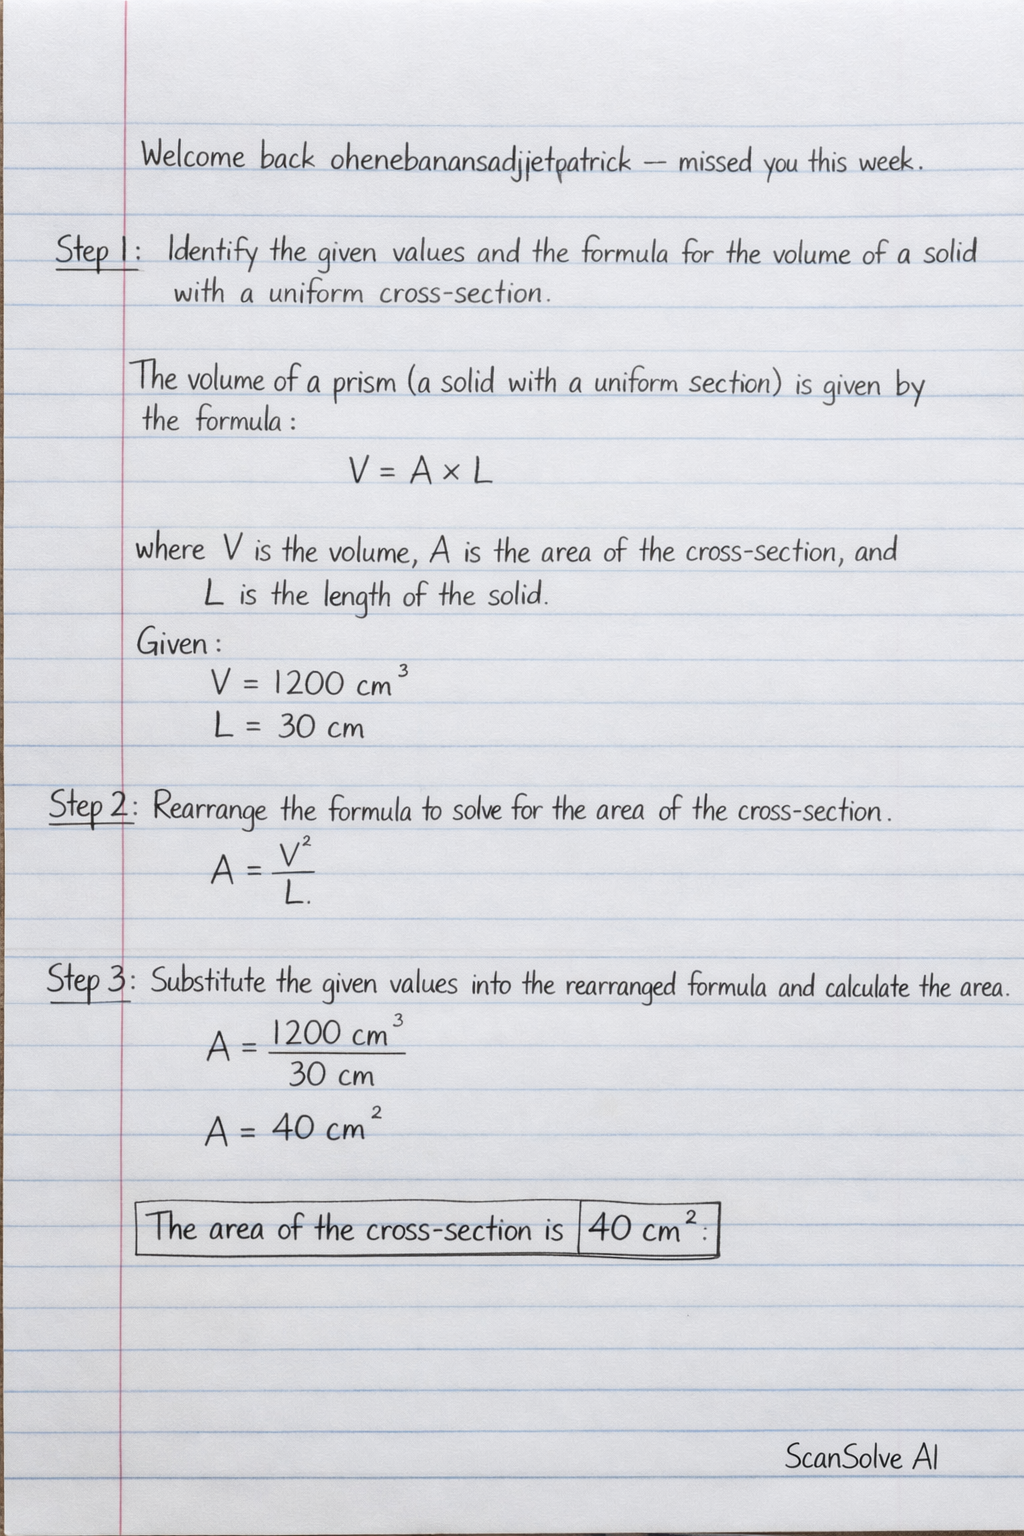 Welcome back ohenebanansadjjetpatrick — missed you this week.
Step 1: Identify the given values and the formula for the volume of a solid
with a uniform cross-section.
The volume of a prism (a solid with a uniform section) is given by
the formula:
V = A × L
where V is the volume, A is the area of the cross-section, and
L is the length of the solid.
Given:
V = 1200 cm³
L = 30 cm
Step 2: Rearrange the formula to solve for the area of the cross-section.
A = V²/L.
Step 3: Substitute the given values into the rearranged formula and calculate the area.
A = 1200 cm³/30 cm
A = 40 cm²
The area of the cross-section is 40 cm²:
ScanSolve AI